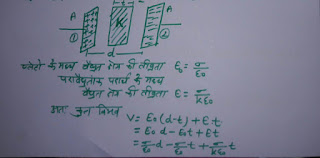 A K A
① ②
t
d
प्लेटो के मध्य वैद्युत क्षेत्र की तीव्रता E₀ = σ/ε₀
परावैद्युतांक पदार्थ के मध्य
वैद्युत क्षेत्र की तीव्रता E = σ/kε₀
अतः कुल विभव
V = E₀(d-t) + Et
= E₀d - E₀t + Et
= σ/ε₀ d - σ/ε₀ t + σ/kε₀ t